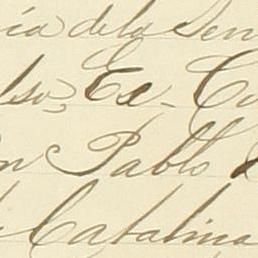 ía de la Sen
lso, Ex- Ca
n Pablo
Catalina